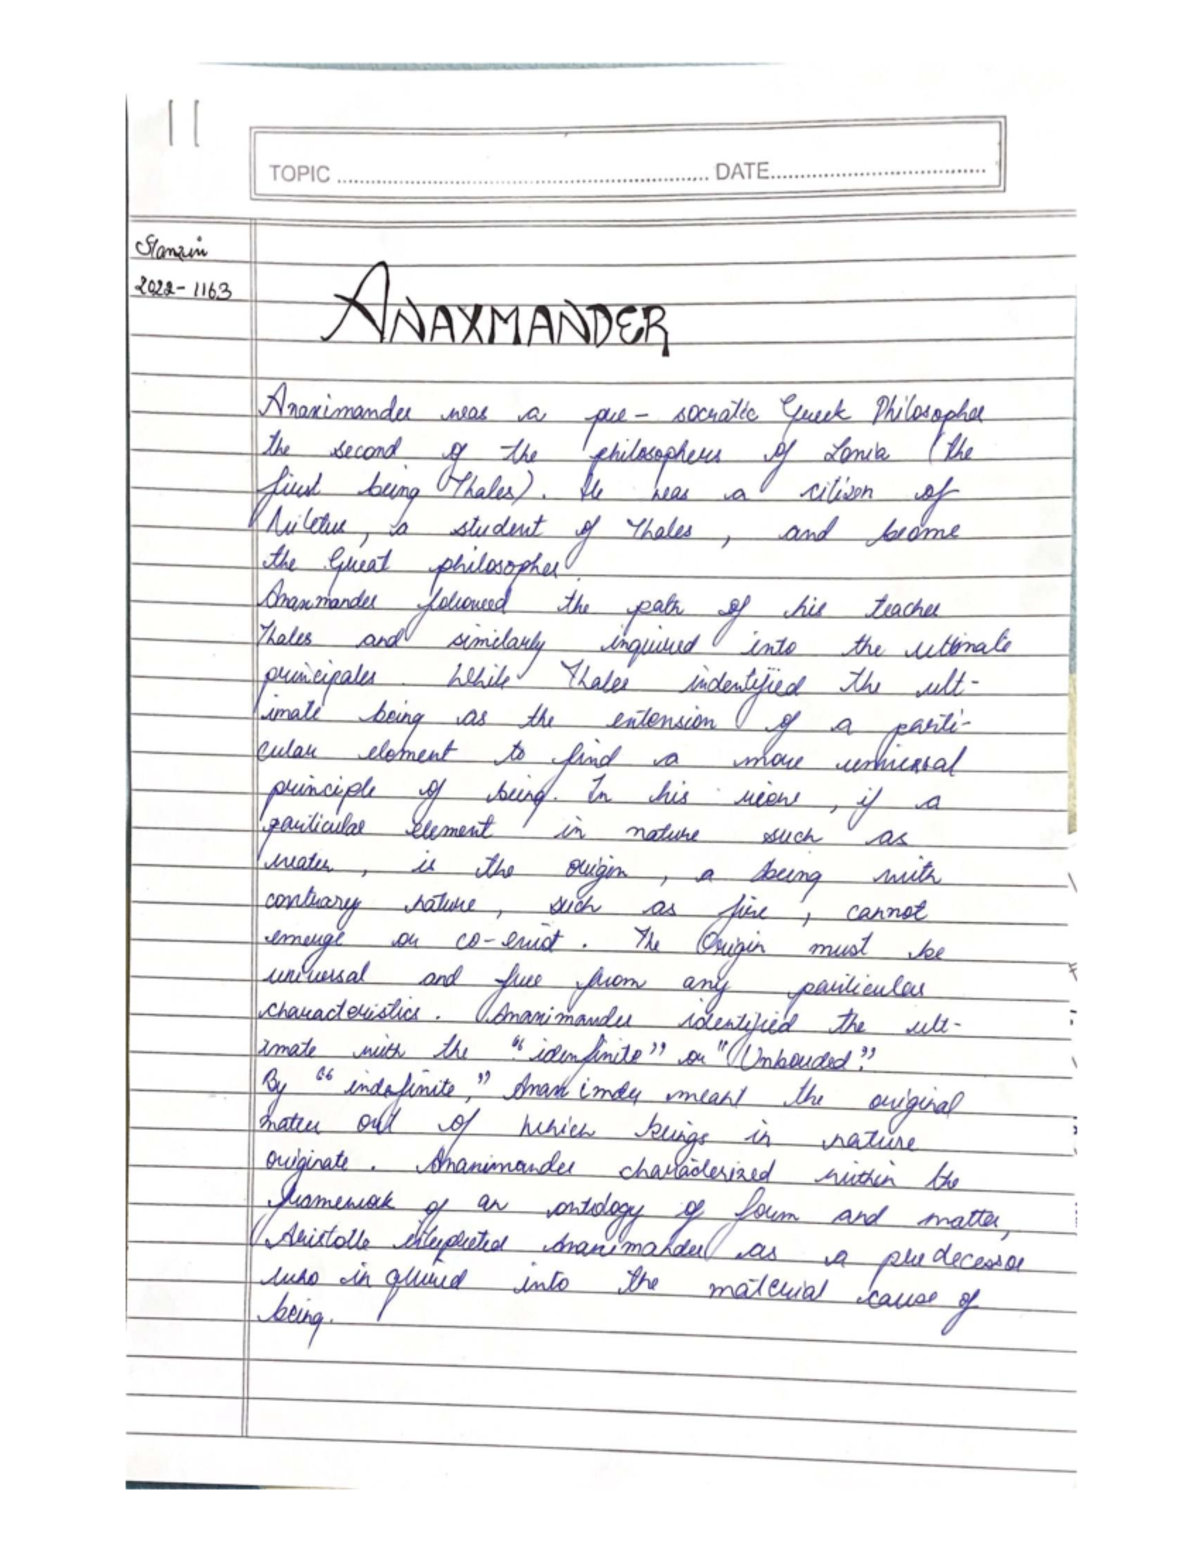 TOPIC ........................ DATE........................
Stanzin
2022-1163
ANAXMANDER
Anaximander was a pre- socratic Greek Philosopher
the second of the philosophers of Ionia (the
first being Thales). He was a citizen of
Miletus, a student of Thales, and become
the Great philosopher.
Anaxmander followed the path of his teacher
Thales and similarly inquired into the ultimate
principales. While Thales indentified the ult-
imate being as the extension of a parti-
cular element to find a more universal
principle of being. In his view, if a
particular element in nature such as
water, is the origin, a being with
contrary nature, such as fire, cannot
emerge or co-exist. The Origin must be
universal and free from any particular
characteristics. Anaximander identified the ult-
imate with the "idenfinite" or "Unbouded".
By "indefinite," Anaximder meant the original
mater out of which beings in nature
originate. Anaximander characterized within the
framework of an ontology of form and matter,
Aristotle interpreted Anaximander as a predecessor
who inquired into the material cause of
being.